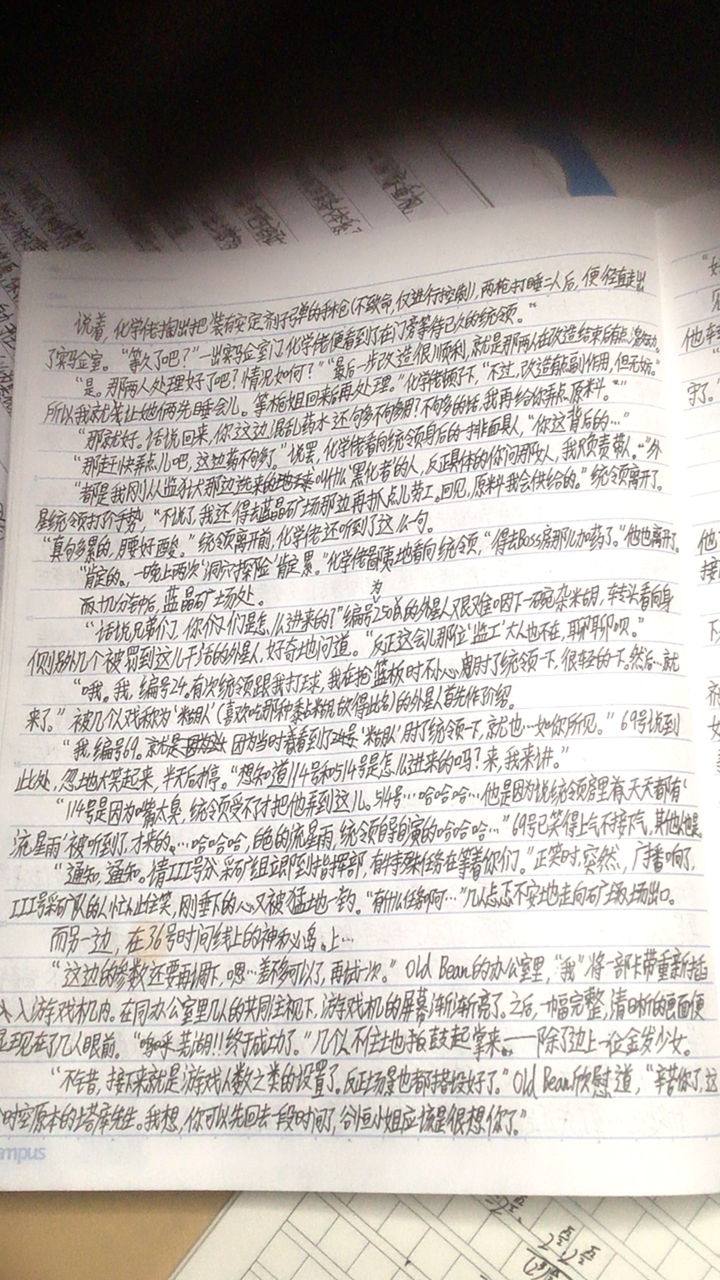 说着，化学佬掏出把装有安定剂子弹的手枪（不致命，仅进行控制），两枪打睡二人后，便径直走出
了实验室。“等久了吧？”一出实验室门，化学佬便看到了在门旁等待已久的统领。
“是。那两人处理好了吧？情况如何？”“最后一步改造很顺利，就是那两人在改造结束后有点
所以我就先让他俩先睡会儿。掌柜姐回来后再处理。”化学佬顿了下，“不过，改造有点副作用，但无妨。”
“那就好。话说回来，你这边混乱药水还够多不够用？不够多的话，我再给你弄点原料。”
“那赶快弄点儿吧，这边药不够了。”说罢，化学佬看向统领身后的一排面具人，“你这背后的…”
“都是我刚从监狱那边 来的 叫什么黑化者的人，反正具体的你问那女人，我只负责带人。”外
星统领打个手势，“不说了，我还得去蓝晶矿场那边再抓点儿劳工。回见，原料我会供给的。”统领离开了。
“真句多累的，腰好酸。”统领离开前，化学佬还听到了这么一句。
“肯定的，一晚上两次‘洞穴探险’肯定累。”化学佬鄙夷地看向统领，“得去Boss房那儿加药了。”他也离开了。
而十几分钟后，蓝晶矿场处。
“话说兄弟们，你们们是怎么进来的？”编号为250的外星人艰难咽下一碗杂米胡，转头看向身
侧另外几个被罚到这儿干活的外星人，好奇地问道。“反正这会儿那位‘监工’大人也不在，聊聊呗。”
“哦。我，编号24。有次统领跟我打球，我在抢篮板时不小心肘了统领一下，很轻的一下。然后…就
来了。”被几个人戏称为‘粘队’（喜欢吃那种黏粘糊故得此名）的外星人首先作介绍。
“我，编号69。就是 因为当时看到了 ‘粘队’肘了统领一下，就也…如你所见。”69号说到
此处，忽地大笑起来，半天后才停。“想知道114号和514号是怎么进来的吗？来，我来讲。”
“114号是因为嘴太臭，统领受不了才把他弄到这儿。514号…哈哈哈…他是因为说统领房里每天天都有‘
流星雨’被听到了才来的。…哈哈哈，白色的流星雨，统领自导自演的哈哈哈…”69号已笑得上气不接下气，其他人也是
“通知，通知。请III号分采矿组立即到指挥部，有特殊任务在等着你们。”正笑时，突然，广播响了，
III号采矿队的人忙止住笑，刚垂下的心又被猛地一钓。“有什么任务啊…”几人忐忑不安地走向矿场出口。
而另一边，在36号时间线上的神秘岛上…
“这边的参数还要再调下，嗯…差不多可以了，再试一次。”Old Bean的办公室里，“我”将一部卡带重新插
入游戏机内。在同办公室里几人的共同注视下，游戏机的屏幕渐渐亮了。之后，一幅完整，清晰的画面便
呈现在了几人眼前。“ 芜湖！！终于成功了。”几个人不住地拍鼓起掌来。——除了边上一位金发少女。
“不错，接下来就是游戏人数之类的设置了。反正场景也都搭设好了。”Old Bean欣慰道，“辛苦你了，这
时空原本的塔库先生。我想，你可以先回去一段时间了，谷恒小姐应该是很想你了。”
mpus